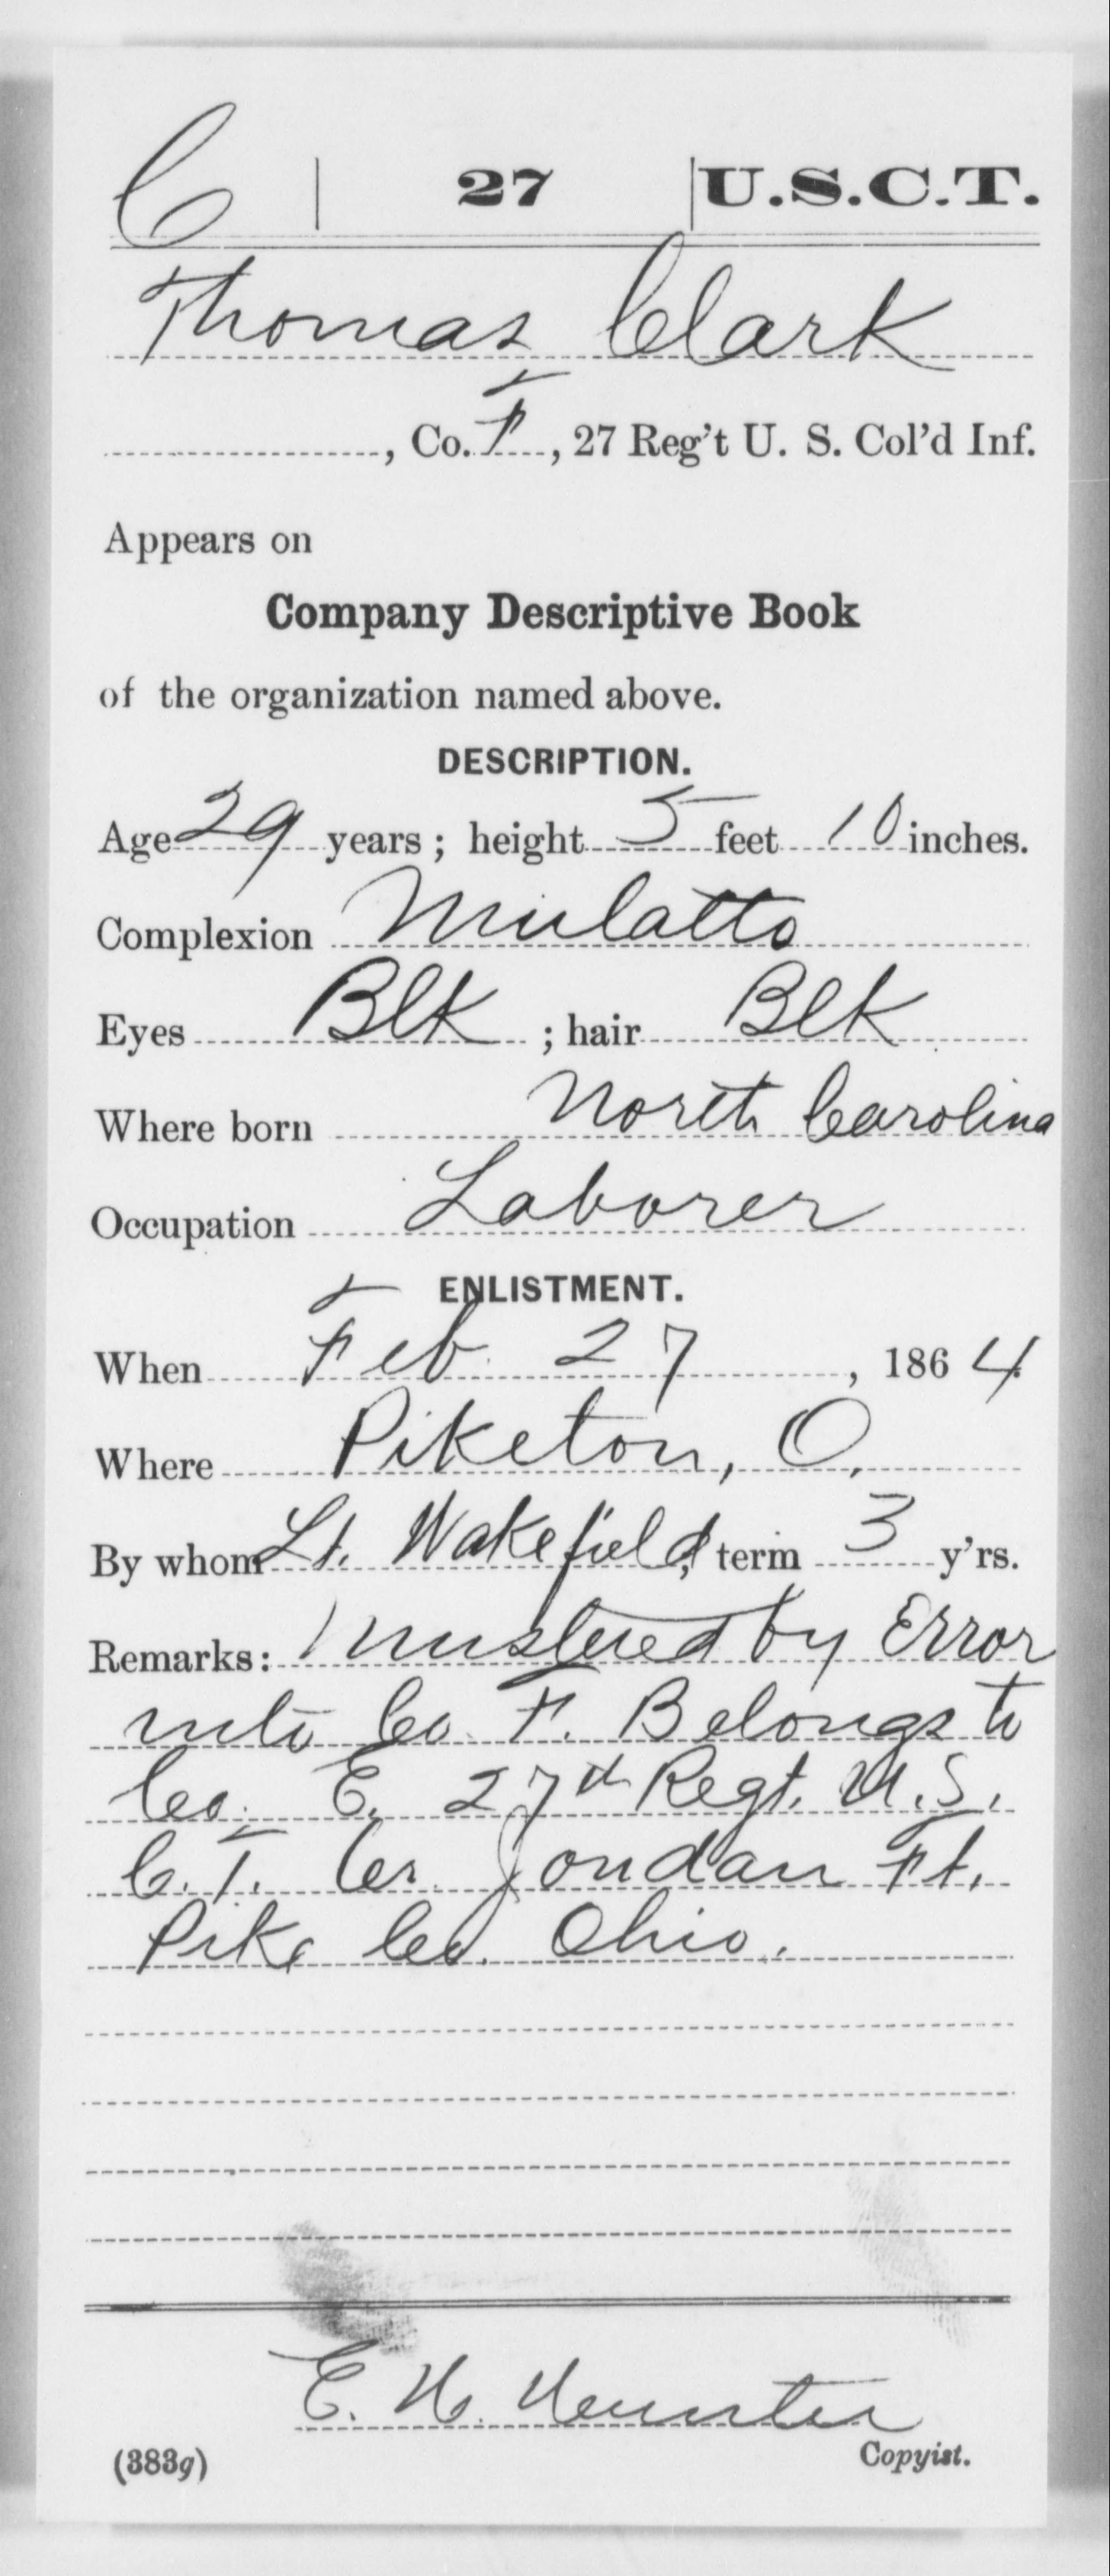 C | 27 | U.S.C.T.
Thomas Clark
, Co. F, 27 Reg't U. S. Col'd Inf.
Appears on
Company Descriptive Book
of the organization named above.
DESCRIPTION.
Age 29 years; height 5 feet 10 inches.
Complexion Mulatto
Eyes Blk; hair Blk
Where born North Carolina
Occupation Laborer
ENLISTMENT.
When Feb. 27, 1864
Where Piketon, O.
By whom Lt. Wakefield; term 3 y'rs.
Remarks: Mustered by Error
into Co. F. Belongs to
Co. E. 27th Regt. U.S.
C.T. Cr. Jondan Ft.
Pike Co. Ohio.
E. W.
(383g) Copyist.